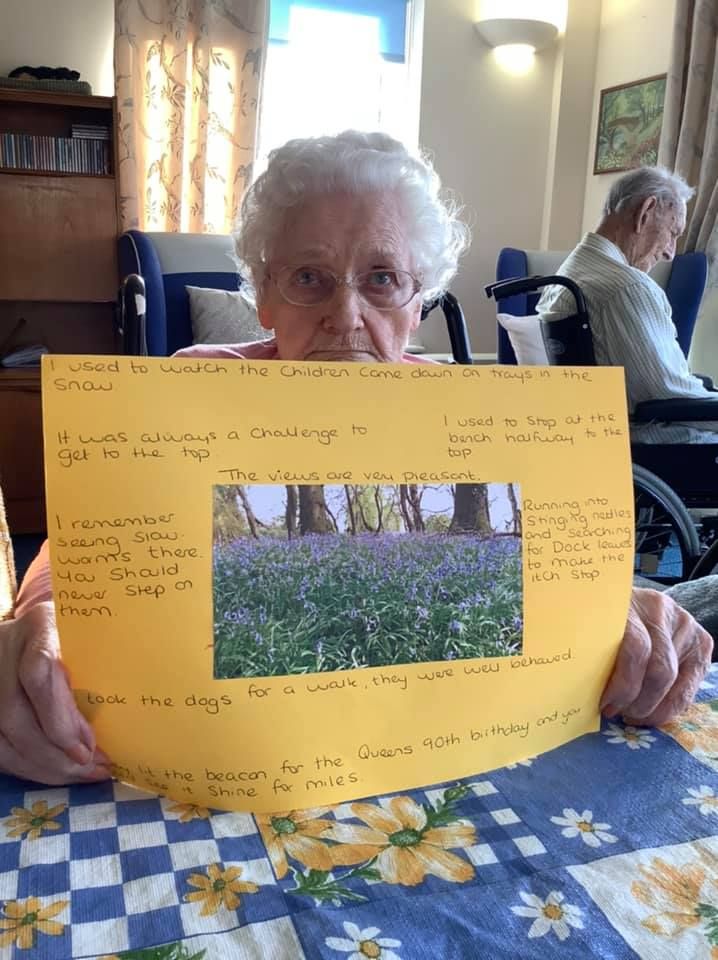 I used to watch the Children Come down on trays in the
Snow
It was always a Challenge to
get to the top.
I used to Stop at the
bench halfway to the
top
The views are very pleasant.
I remember
Seeing Slow.
worms there.
You Should
never Step on
them.
Running into
Stinging nettles
and Searching
for Dock leaves
to make the
itch Stop.
took the dogs for a walk, they were well behaved.
lit the beacon for the Queens 90th birthday and you
See it Shine for miles.